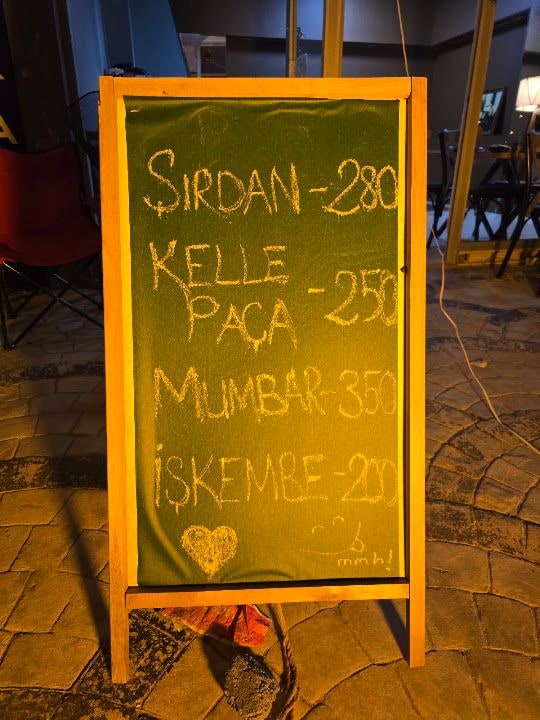 ŞIRDAN - 280
KELLE
PAÇA - 250
MUMBAR - 350
İŞKEMBE - 200
mmh!